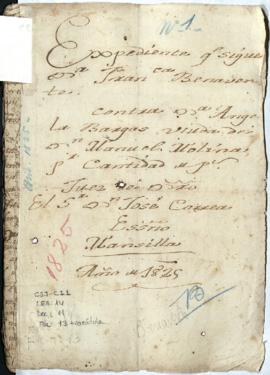 Nº 1.
Expediente qe sigue
Dn Franco Benaven-
te.
contra Da Ange-
la Bargas viuda de
Dn Manuel Molina,
pr Cantidad de ps
Juez de dro
El Sr Dn José Correa
Essno
Mansilla
Año de 1825
1825
CSJ-C11
LEG: 14
Doc: 11